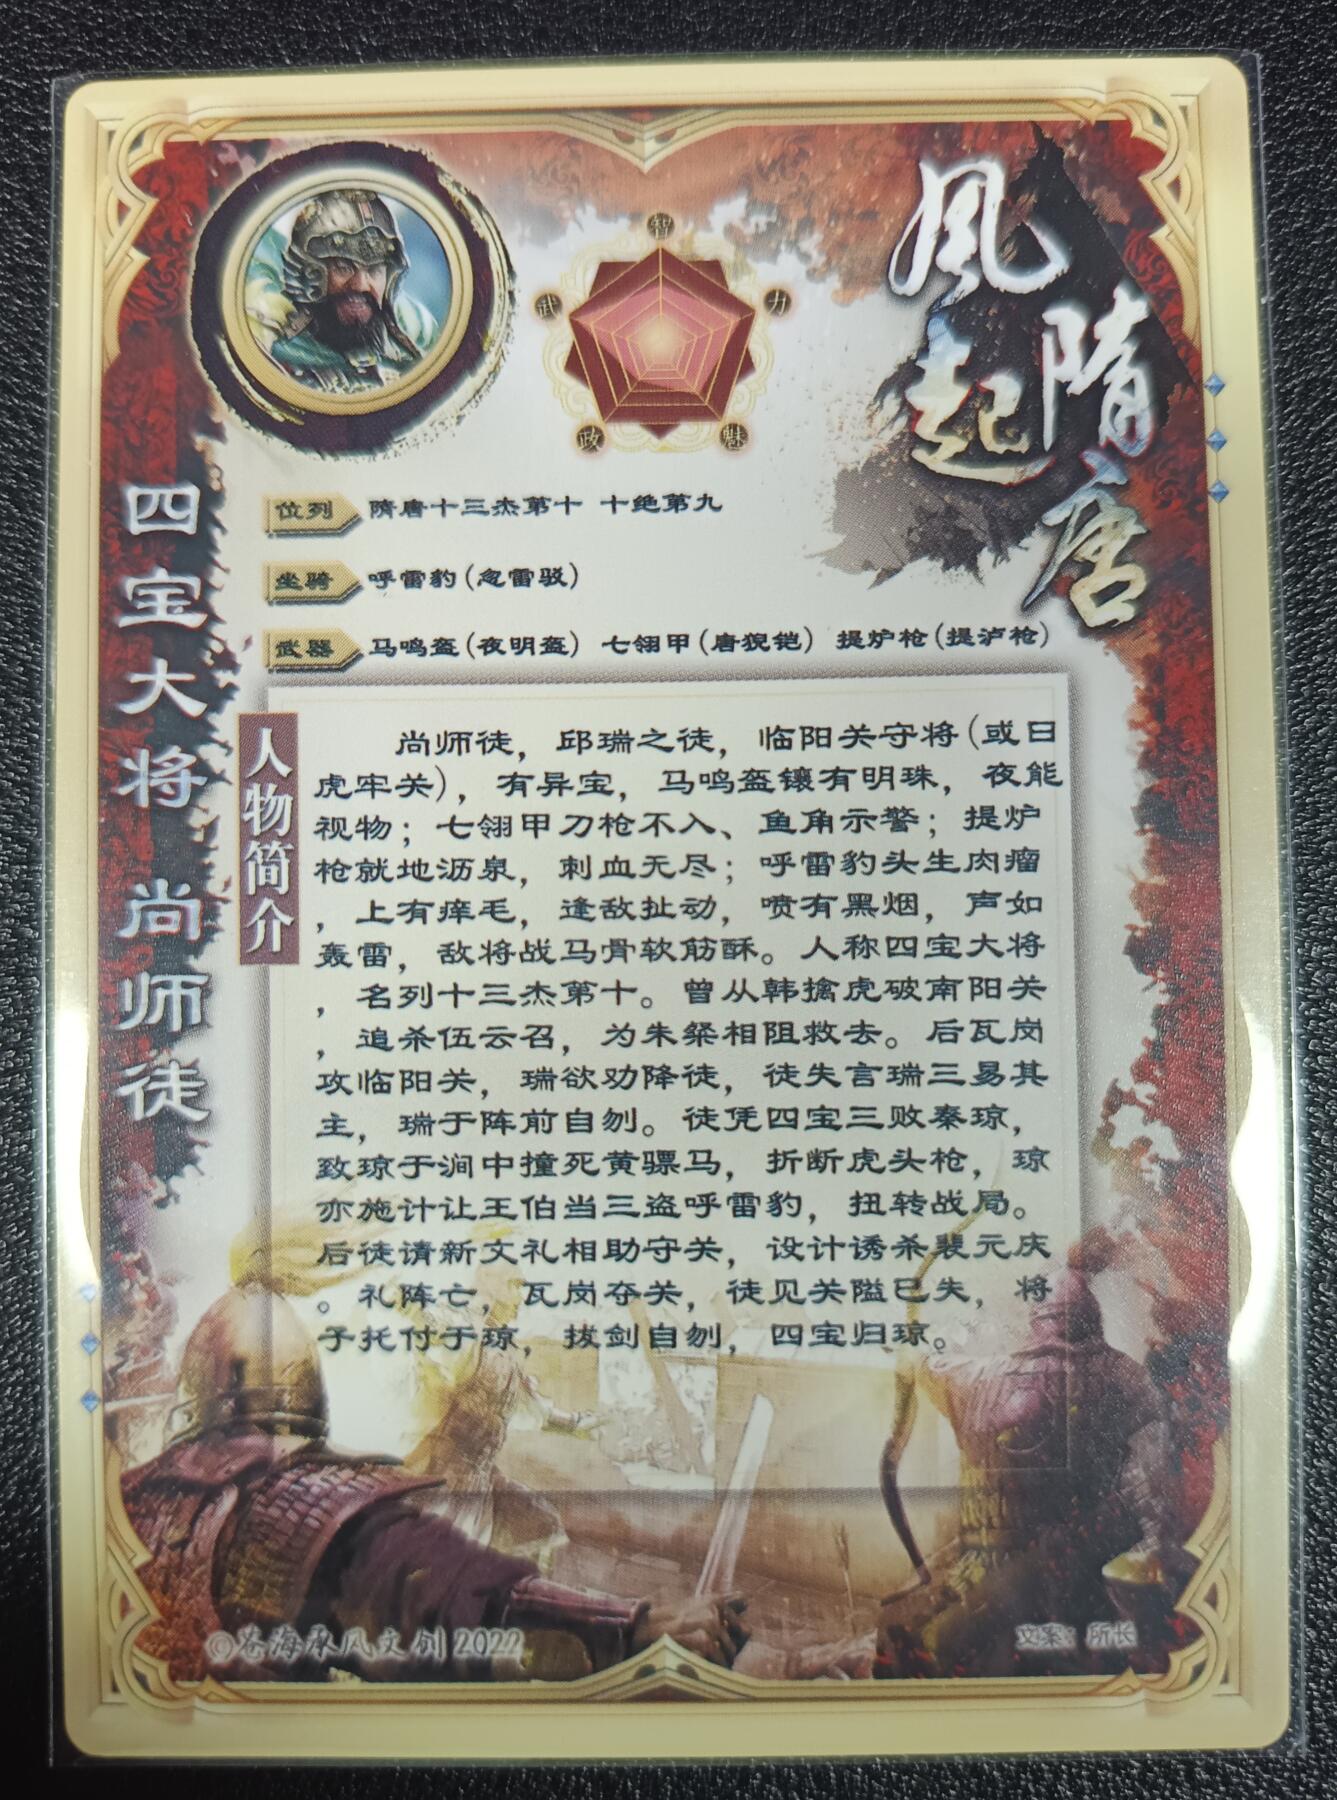 風起
隋唐
智
武
力
政
魅
四宝大将 尚师徒
位列 隋唐十三杰第十 十绝第九
坐骑 呼雷豹(忽雷驳)
武器 马鸣盔(夜明盔) 七翎甲(唐猊铠) 提炉枪(提泸枪)
人物简介
尚师徒，邱瑞之徒，临阳关守将(或曰
虎牢关)，有异宝，马鸣盔镶有明珠，夜能
视物；七翎甲刀枪不入、鱼角示警；提炉
枪就地沥泉，刺血无尽；呼雷豹头生肉瘤
，上有痒毛，逢敌扯动，喷有黑烟，声如
轰雷，敌将战马骨软筋酥。人称四宝大将
，名列十三杰第十。曾从韩擒虎破南阳关
，追杀伍云召，为朱粲相阻救去。后瓦岗
攻临阳关，瑞欲劝降徒，徒失言瑞三易其
主，瑞于阵前自刎。徒凭四宝三败秦琼，
致琼于涧中撞死黄骠马，折断虎头枪，琼
亦施计让王伯当三盗呼雷豹，扭转战局。
后徒请新文礼相助守关，设计诱杀裴元庆
。礼阵亡，瓦岗夺关，徒见关隘已失，将
子托付于琼，拔剑自刎，四宝归琼。
©苍海承风文创 2022
文案：所长